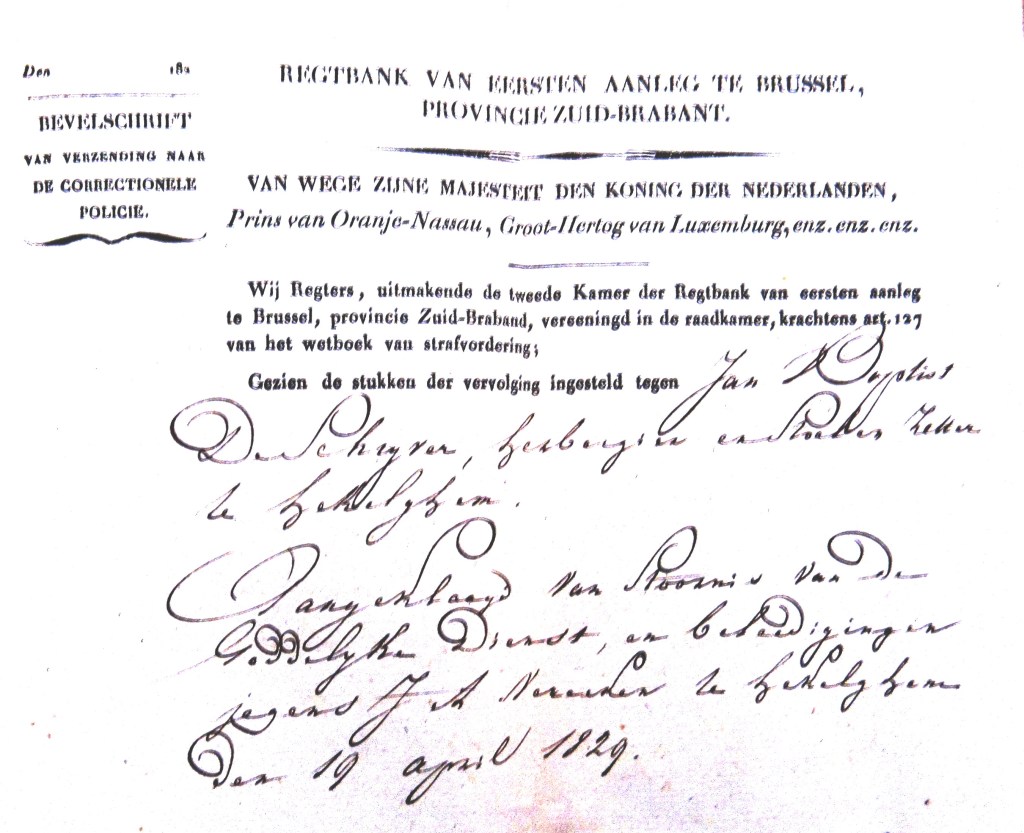 Den 182
BEVELSCHRIFT
VAN VERZENDING NAAR
DE CORRECTIONELE
POLICIE.
REGTBANK VAN EERSTEN AANLEG TE BRUSSEL,
PROVINCIE ZUID-BRABANT.
VAN WEGE ZIJNE MAJESTEIT DEN KONING DER NEDERLANDEN,
Prins van Oranje-Nassau, Groot-Hertog van Luxemburg, enz. enz. enz.
Wij Regters, uitmakende de tweede Kamer der Regtbank van eersten aanleg
te Brussel, provincie Zuid-Braband, vereenigd in de raadkamer, krachtens art. 127
van het wetboek van strafvordering;
Gezien de stukken der vervolging ingesteld tegen Jan Baptist
De Schryver, herbergier en Stoelen Zetter
te hekelghem.
Aangeklaagd van Stoornis van de
Goddelyke Dienst, en beleedigingen
jegens J. Vereeken te hekelghem
Den 19 april 1829.